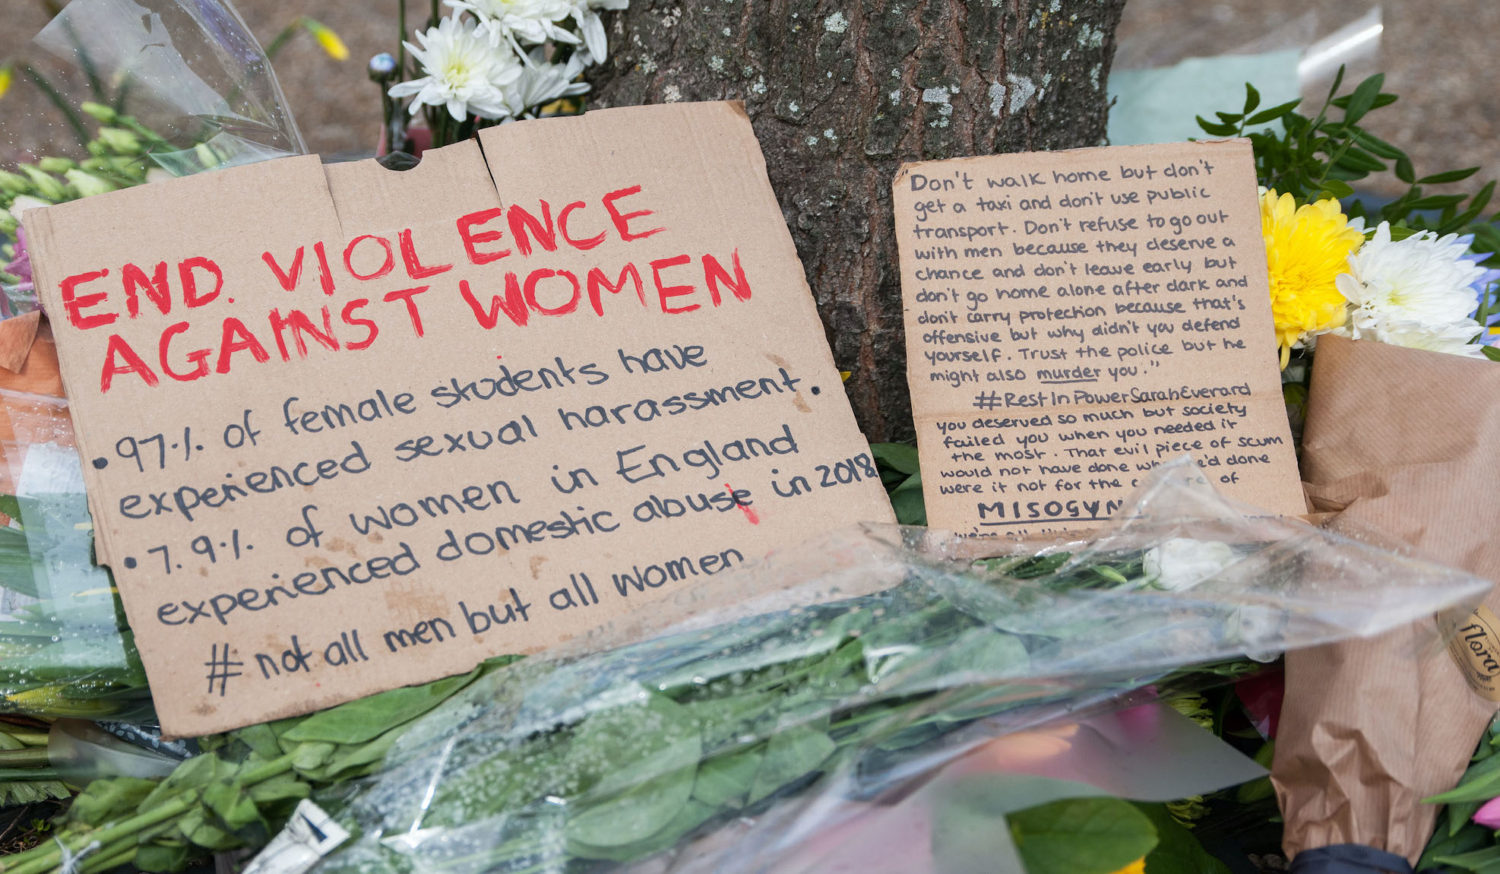 END. VIOLENCE
AGAINST WOMEN
• 97·/. of female students have
experienced sexual harassment.
• 7.9·/. of women in England
experienced domestic abuse in 2018
# not all men but all women
"Don't walk home but don't
get a taxi and don't use public
transport. Don't refuse to go out
with men because they deserve a
chance and don't leave early but
don't go home alone after dark and
don't carry protection because that's
offensive but why didn't you defend
yourself. Trust the police but he
might also murder you."
#RestInPowerSarahEverard
you deserved so much but society
failed you when you needed it
the most. That evil piece of scum
would not have done he'd done
were it not for the of
MISOGYN
flora